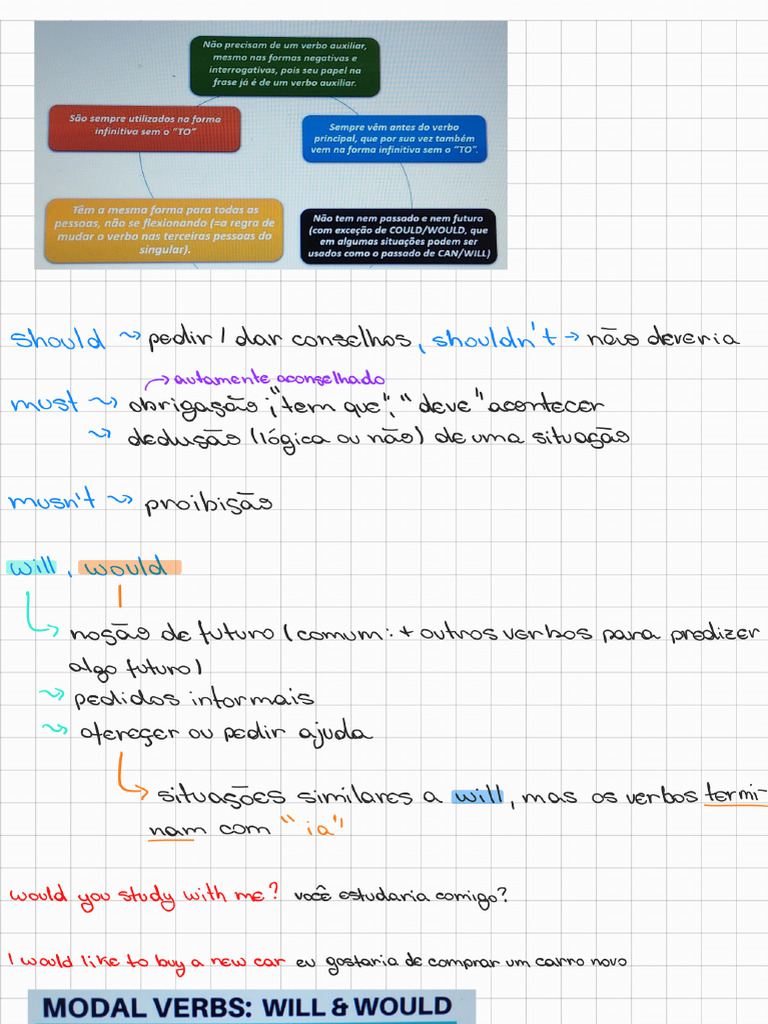 Não precisam de um verbo auxiliar,
mesmo nas formas negativas e
interrogativas, pois seu papel na
frase já é de um verbo auxiliar.
São sempre utilizados na forma
infinitiva sem o "TO"
Sempre vêm antes do verbo
principal, que por sua vez também
vem na forma infinitiva sem o "TO".
Têm a mesma forma para todas as
pessoas, não se flexionando (=a regra de
mudar o verbo nas terceiras pessoas do
singular).
Não tem nem passado e nem futuro
(com exceção de COULD/WOULD, que
em algumas situações podem ser
usados como o passado de CAN/WILL)
should → pedir / dar conselhos, shouldn't → não deveria
→ autamente aconselhado
must → obrigação; "tem que", "deve" acontecer
→ dedusão (lógica ou não) de uma situação
musn't → proibisão
will, would
→ nosão de futuro (comum: + outros verbos para predizer
algo futuro)
→ pedidos informais
→ ofereçer ou pedir ajuda
→ situações similares a will, mas os verbos termi-
nam com "ia"
would you study with me? você estudaria comigo?
I would like to buy a new car eu gostaria de comprar um carro novo
MODAL VERBS: WILL & WOULD